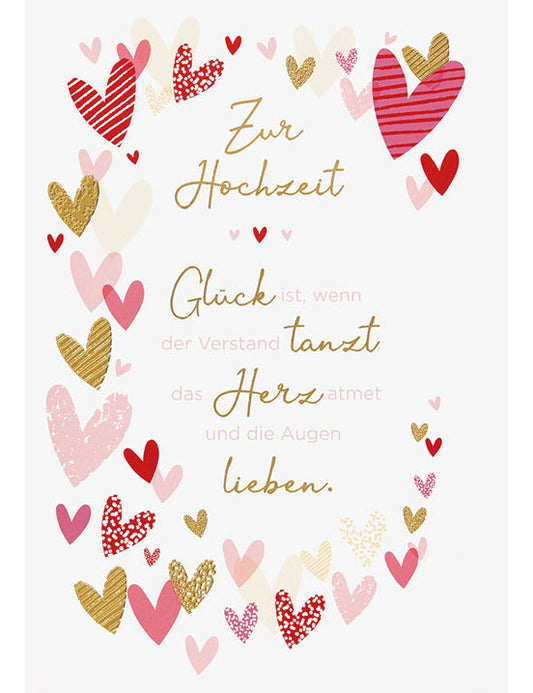 Zur
Hochzeit
Glück ist, wenn
der Verstand tanzt,
das Herz atmet
und die Augen
lieben.